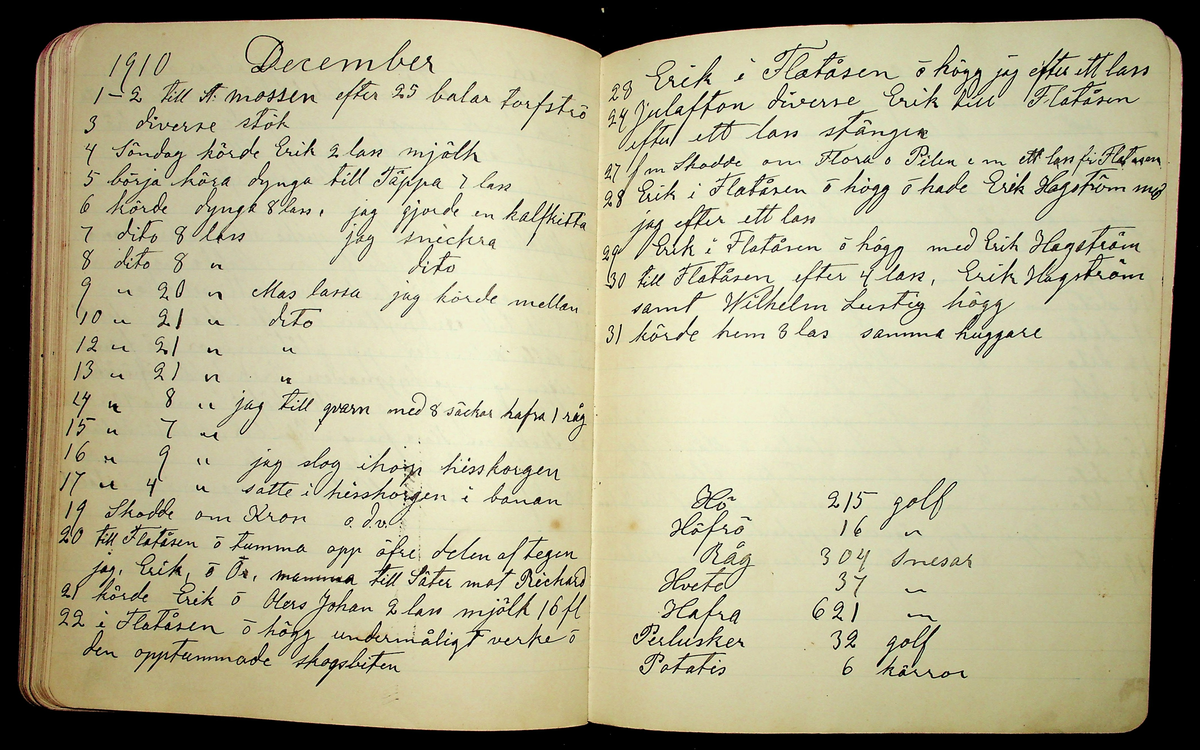 1910 December
1–2 till St: mossen efter 25 balar torfströ
3 diverse stök
4 Söndag körde Erik 2 lass mjölk
5 börja köra dynga till Täppa 7 lass
6 körde dynga 8 lass, jag gjorde en kalfkätta
7 dito 8 lass jag snickra
8 dito 8 " dito
9 " 20 " Mas lassa jag körde mellan
10 " 21 " dito
12 " 21 " "
13 " 21 " "
14 " 8 " jag till qvarn med 8 säckar hafra 1 råg
15 " 7 "
16 " 9 " jag slog ihop hisskorgen
17 " 4 " satte i hisskorgen i banan
19 Skodde om Kron o. dv.
20 till Flatåsen ö tumma opp öfre delen af tegen
jag, Erik, ö Ol. mamma till Säter mot Richard
21 körde Erik ö Olers Johan 2 lass mjölk 16 fl
22 i Flatåsen ö högg undermåligt verke ö
den opptummade skogsbiten
23 Erik i Flatåsen ö högg jag efter ett lass
24 Julafton diverse Erik till Flatåsen
efter ett lass stänger
27 f m Skodde om Flora o Pilen e m ett lass fr: Flatåsen
28 Erik i Flatåsen ö högg ö hade Erik Hagström med
jag efter ett lass
29 Erik i Flatåsen ö högg med Erik Hagström
30 till Flatåsen efter 4 lass, Erik Hagström
samt Wilhelm Lustig högg
31 körde hem 3 las samma huggare
Hö 215 golf
Höfrö 16 "
Råg 304 Snesar
Hvete 37 "
Hafra 621 "
Perlusker 32 golf
Potatis 6 kärror